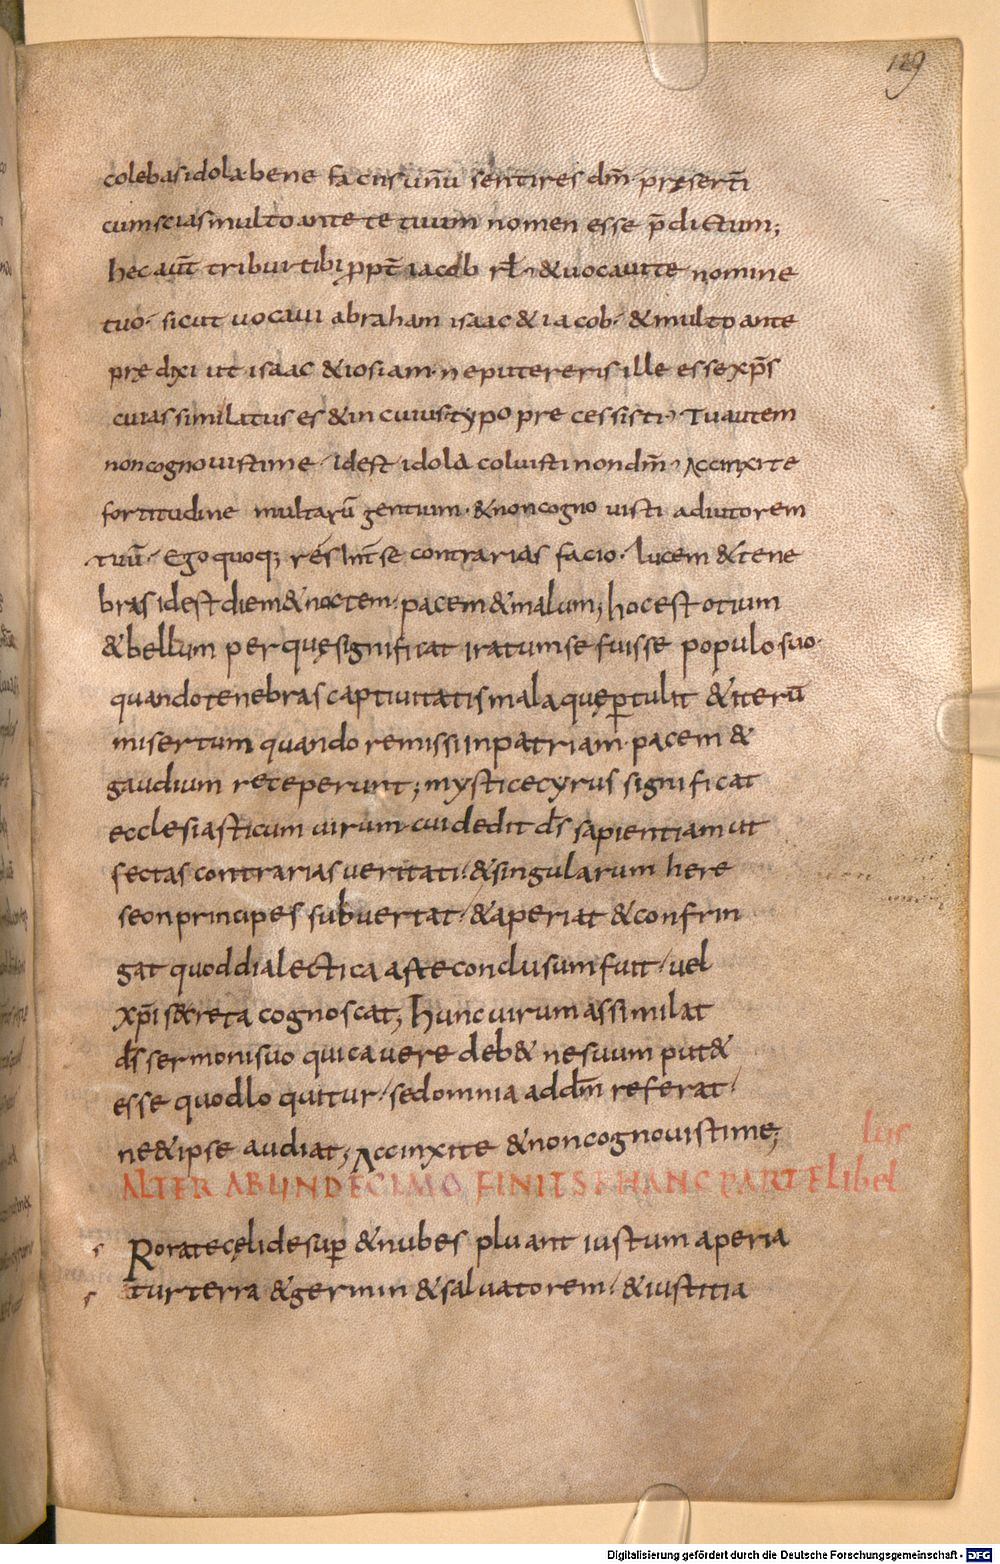 129
colebas idola bene factus unū sentires dm̄ presertī
cum scias multo ante te tuum nomen esse p̄dictum;
hec aut̄ tribui tibi ꝓpt̄ iacob rł &uocaui te nomine
tuo· sicut uocaui abraham isaac & iacob· &multo ante
prędixi ut isaac &iosiam· ne putereris ille esse xp̄s
cui assimilatus es &in cuius typo precessisti· Tu autem
non cognouisti me· idest idola coluisti non dm̄· Accinxi te
fortitudine multarū gentium· &non cognouisti adiutorem
tuū· Ego quoq; res int̄ se contrarias facio· lucem &tene
bras idest diem &noctem· pacem &malum; hoc est otium
&bellum per quę significat iratum se fuisse populo suo·
quando tenebras captiuitatis mala quę ꝑtulit &iterū
misertum quando remissi in patriam· pacem &
gaudium receperunt; mystice cyrus significat
ecclesiasticum uirum cui dedit ds̄ sapientiam ut
sectas contrarias ueritati· &singularum here
seon principes subuertat· &aperiat &confrin
gat quod dialectica arte conclusum fuit· uel
xp̄i secreta cognoscat; hunc uirum assimilat
ds̄ sermoni suo qui cauere deb& ne suum put&
esse quod loquitur· sed omnia ad dm̄ referat·
ne &ipse audiat; Accinxi te &non cognouisti me;
lus
ALTER AB UNDECIMO FINIT SE HANC PARTE libel
s Rorate cęli desuꝑ &nubes pluant iustum aperia
s tur terra &germin &saluatorem· &iustitia
Digitalisierung gefördert durch die Deutsche Forschungsgemeinschaft - DFG